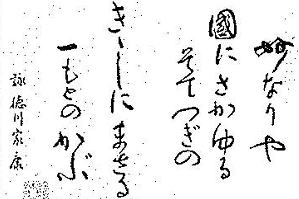 妙なりや
國にさかゆる
そてつぎの
きゝしにまさる
一もとのかぶ
詠徳川家康